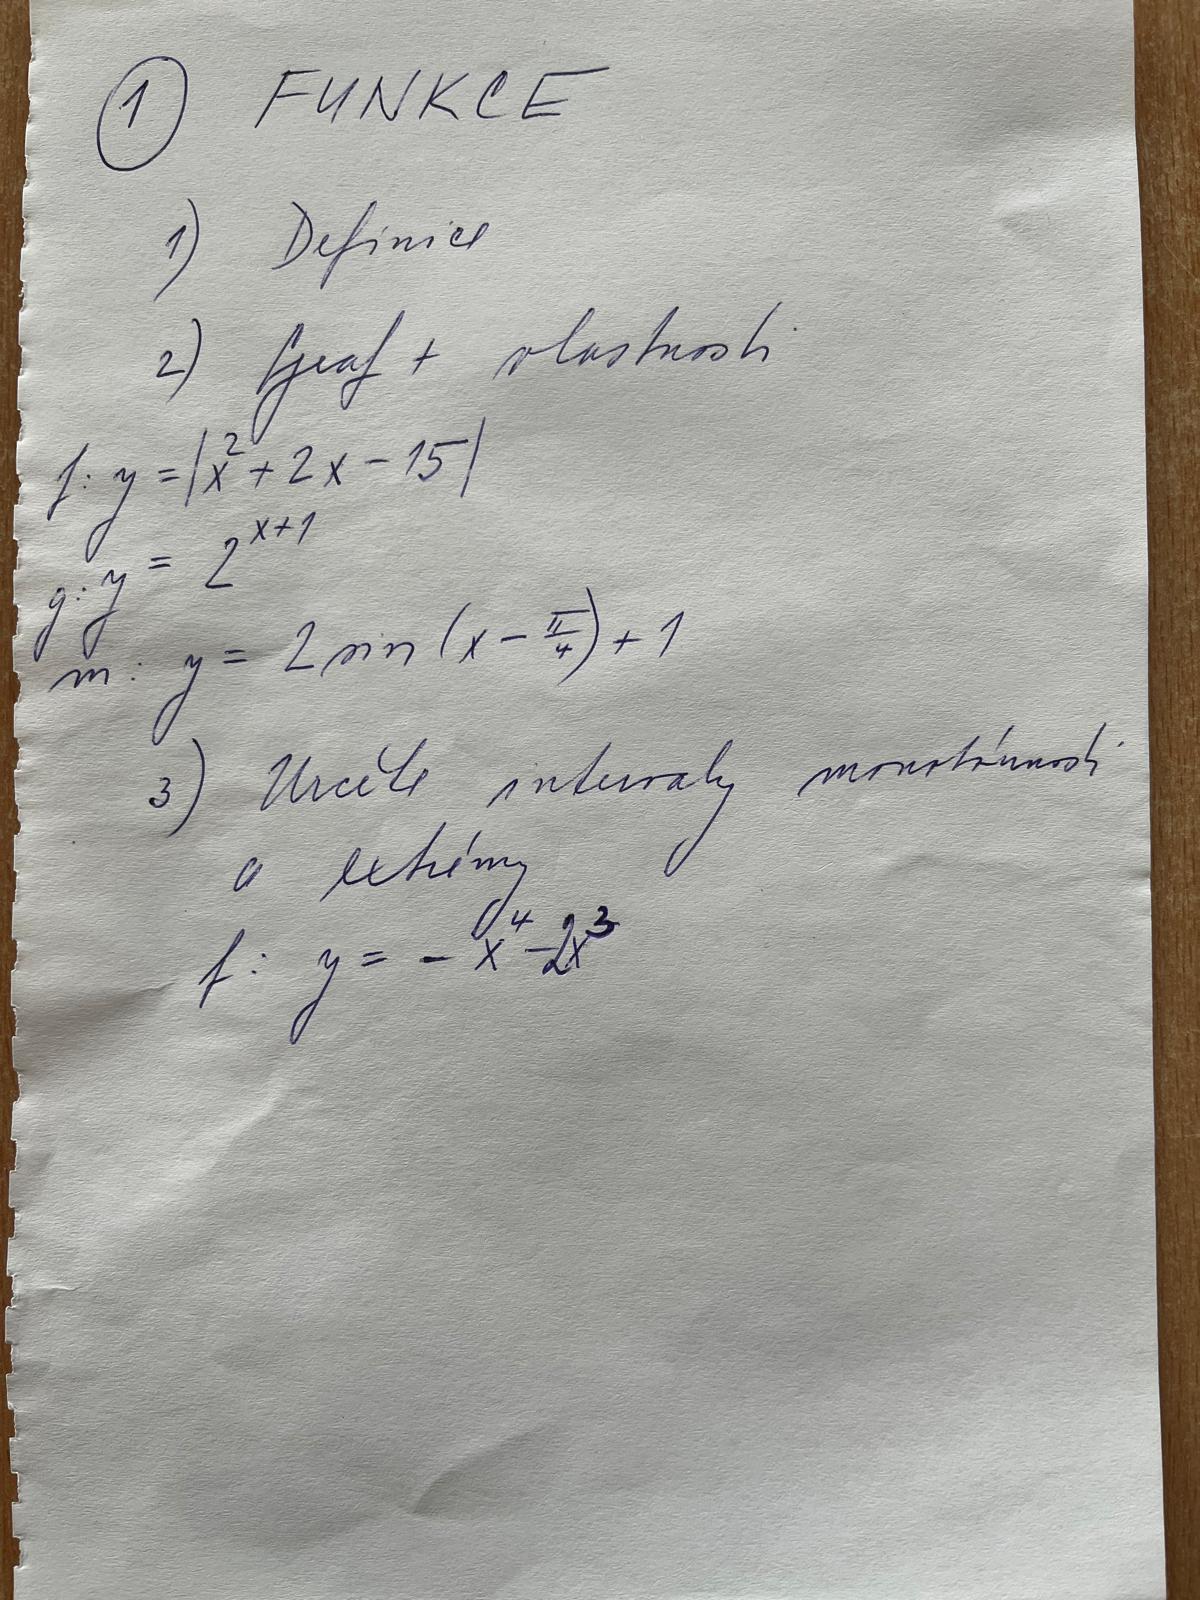 1 FUNKCE
1) Definice
2) Graf + vlastnosti
f: y = |x² + 2x - 15|
g: y = 2^{x+1}
m: y = 2 sin (x - π/4) + 1
3) Určete intervaly monotónnosti
a extrémy
f: y = - x⁴ - 2x³